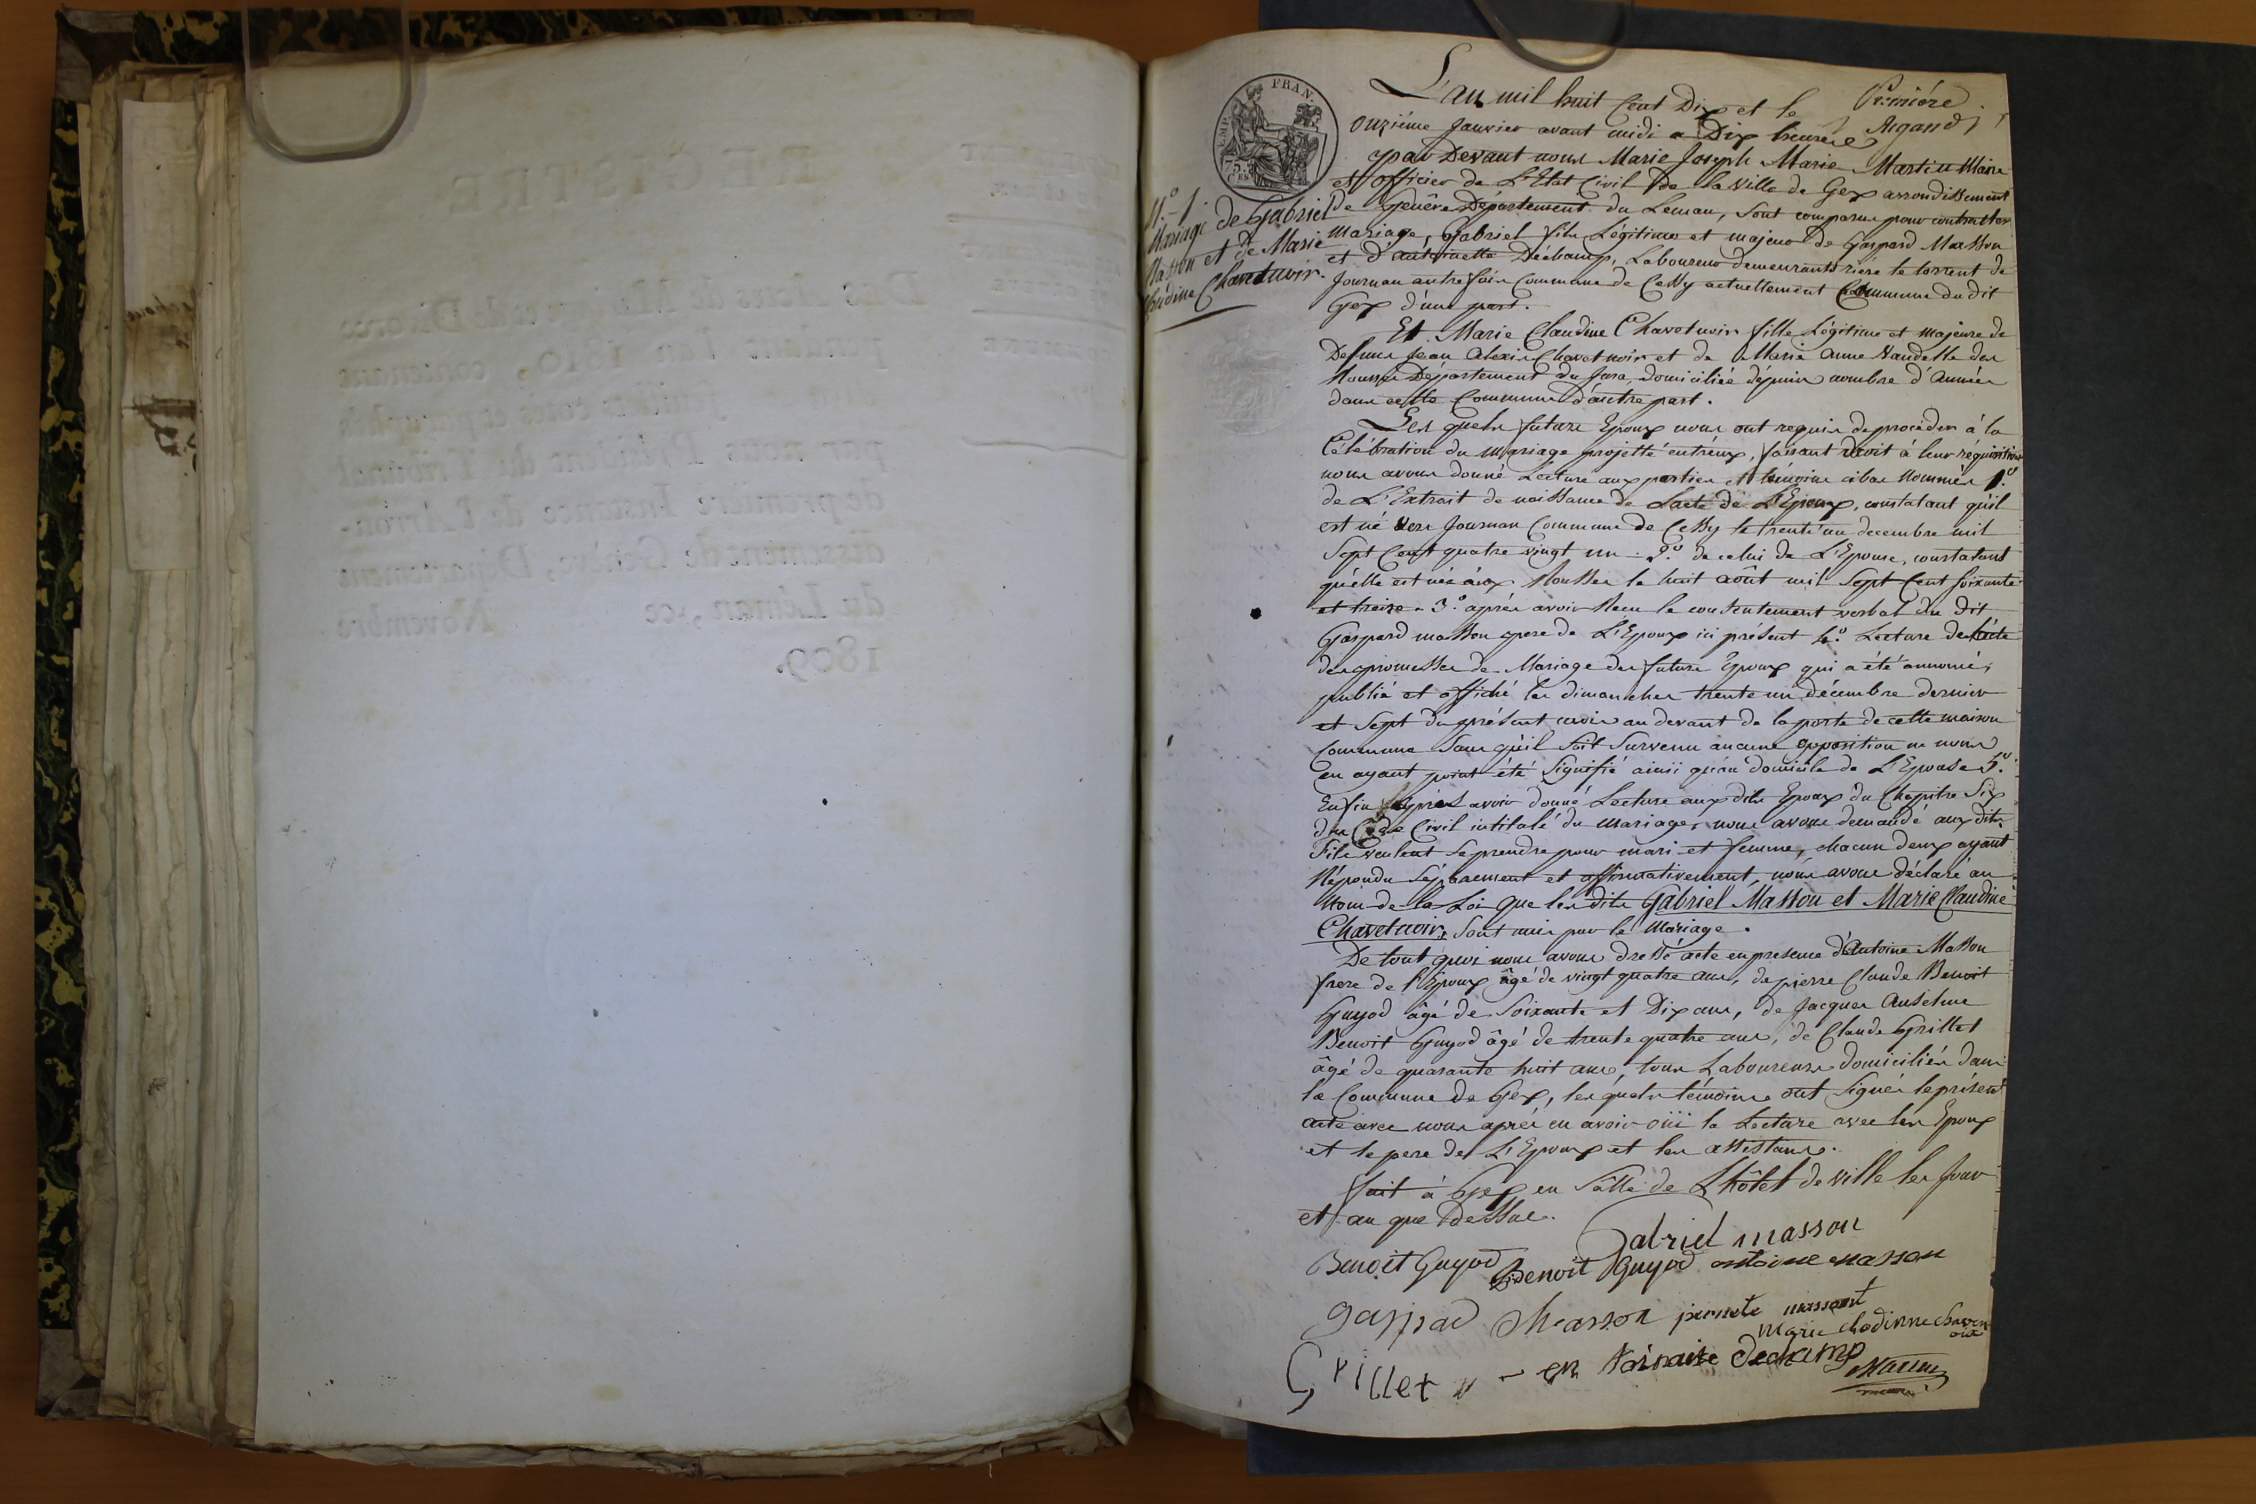 REGISTRE
Des Actes de Mariage et de Divorce
pendant l'an 1810, contenant
feuillets cotés et paraphés
par nous Président du Tribunal
de première Instance de l'Arron-
dissement de Genève, Département
du Léman, ce Novembre
1809.
EMP. FRAN.
Premiére
Argand
N.o 1.
Mariage de Gabriel
Masson et de Marie
Claudine Chavetnoir.
L'an mil huit Cent Dix et le
onziéme Janvier avant midi a Dix heures
par Devant nous Marie Joseph Marie Martin Maire
et officier de L'Etat Civil de la Ville de Gex arrondissement
de Genêve Département du Leman, sont comparus pour contracter
mariage, Gabriel fils Légitime et majeur de Gaspard Masson
et d'antoinette Déchamp, Laboureur demeurants riére le torrent de
Journan autrefois Commune de Cessy actuellement Commune du dit
Gex d'une part.
Et Marie Claudine Chavetnoir fille Légitime et majeure de
Defunt Jean Alexis Chavetnoir et de Marie Anne Vandelle des
Rousses Département du Jura, domiciliée dépuis nombre d'Années
dans cette Commune d'autre part.
Les quels futurs Epoux nous ont requis de procéder à la
Célébration du Mariage projetté entréux, faisant droit à leur réquisition
nous avons donné Lecture aux parties et témoins cibas Nommés 1.o
de L'Extrait de naissance de Lacte de L'Epoux, constatant qu'il
est né vers Journan Commune de Cessy le trente un decembre mil
Sept Cent quatre vingt un - 2.o de celui de L'Epouse, constatant
qu'elle est née aux Rousses le huit août mil Sept Cent soixante
et treize - 3.o aprés avoir Recu le consentement verbal du dit
Gaspard masson pere de L'Epoux ici présent 4.o Lecture de l'acte
des promesses de Mariage des futurs Epoux qui a été annoncé,
publié et affiché les dimanches trente un décembre dernier
et Sept du présent mois au devant de la porte de cette maison
Commune sans qu'il soit Survenu aucune opposition ne nous
en ayant point été Signifié ainsi qu'au domicile de L'Epouse 5.o
Enfin Aprés avoir donné Lecture aux dits Epoux du Chapitre Six
du Code Civil intitulé du Mariage, nous avons demandé aux dits
S'ils veulent se prendre pour mari et femme, chacun deux ayant
Répondu Séparement et affirmativement, nous avons déclaré au
Nom de la Loi que les dits Gabriel Masson et Marie Claudine
Chavetnoir, sont unis par le Mariage.
De tout quoi nous avons dressé acte en presence d'Antoine Masson
frere de l'Epoux âgé de vingt quatre ans, de pierre Claude Benoit
Guyod âgé de Soixante et Dix ans, de Jacques Anselme
Benoit Guyod âgé de trente quatre ans, de Claude Grillet
âgé de quarante huit ans, tous Laboureurs domiciliés dans
la Commune de Gex, les quels témoins ont signés le présent
acte avec nous aprés en avoir oüi la Lecture avec les Epoux
et le pere de L'Epoux et les assistans.
fait à Gex en Salle de L'hôtel de ville les Jour
et an que Dessus.
Gabriel masson
Benoit Guyod Benoit Guyod antoine masson
gaspad Masson pernete massont
marie clodinne chaven
oix
Grillet
Dechamp
Martin